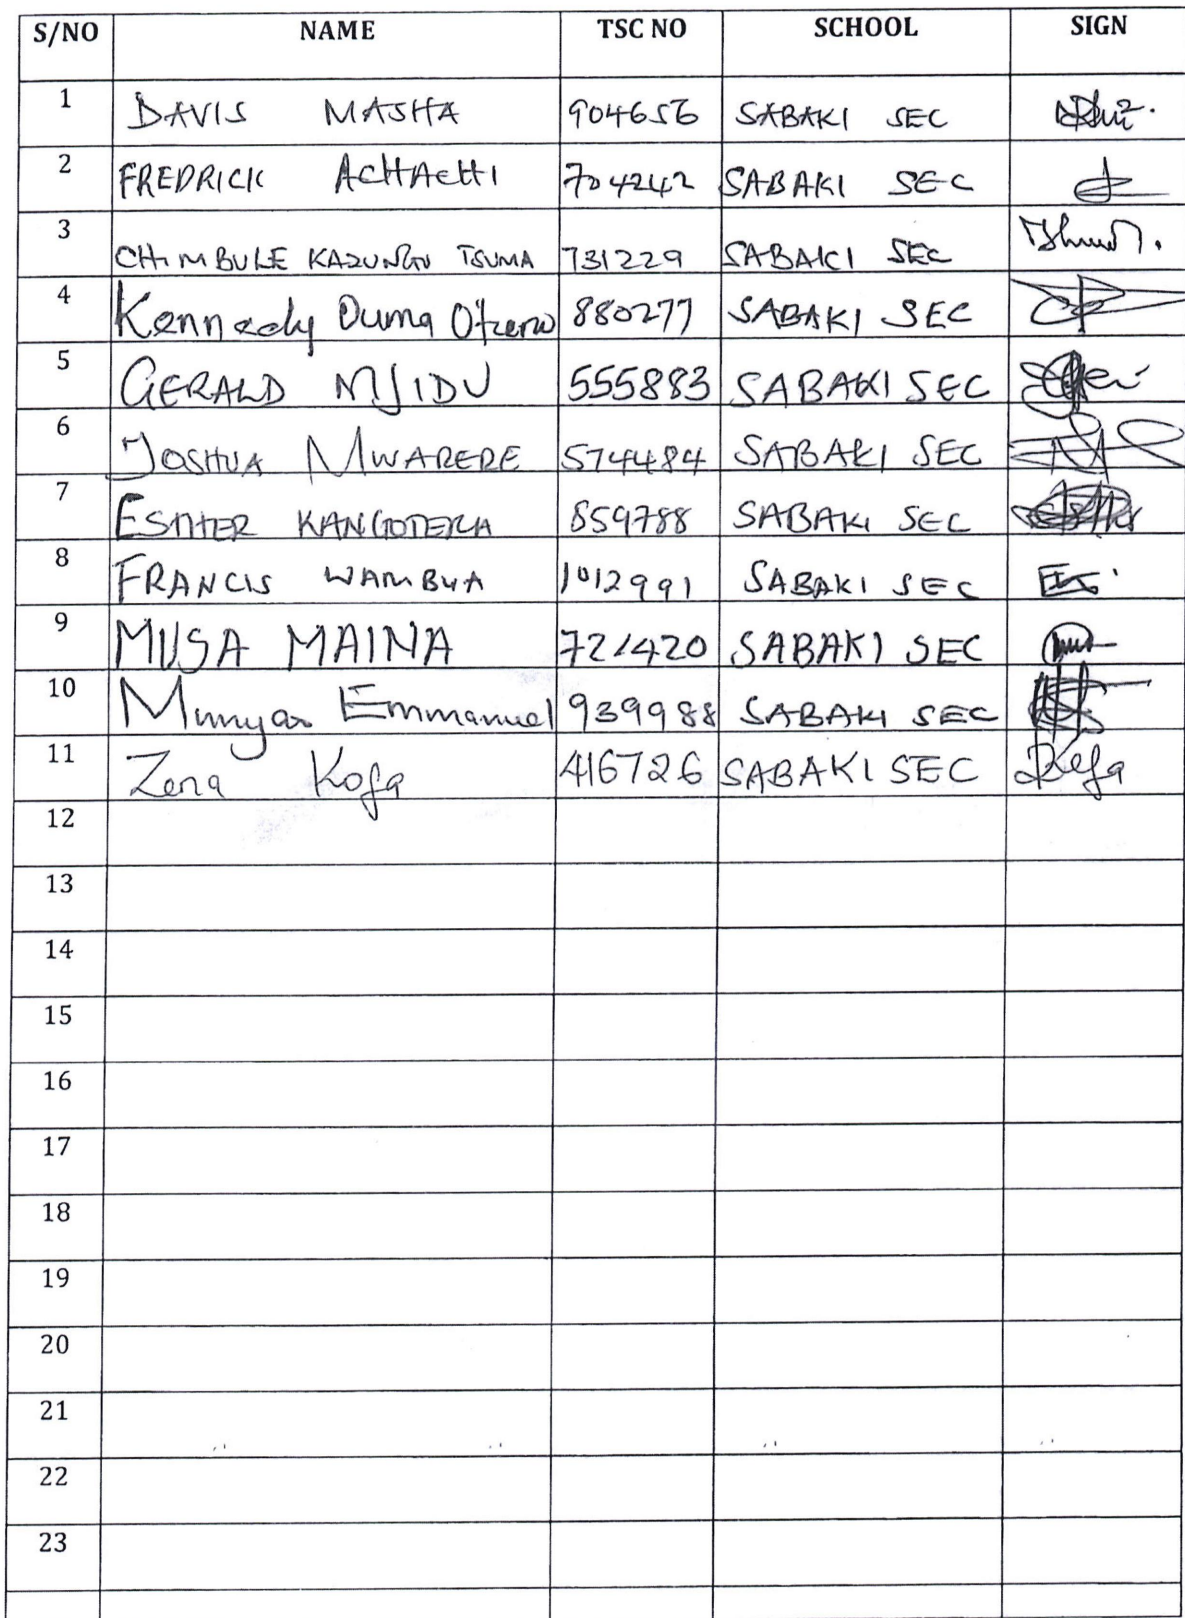 S/NO NAME TSC NO SCHOOL SIGN
1 DAVIS MASHA 904656 SABAKI SEC
2 FREDRICK ACHACHI 704242 SABAKI SEC
3 CHIMBULE KAZUNGU TSUMA 731229 SABAKI SEC
4 Kennedy Ouma 880277 SABAKI SEC
5 GERALD MJIDU 555883 SABAKI SEC
6 JOSHUA MWARERE 574484 SABAKI SEC
7 ESTHER 859788 SABAKI SEC
8 FRANCIS WAMBUA 1012991 SABAKI SEC
9 MUSA MAINA 721420 SABAKI SEC
10 Emmanuel 939988 SABAKI SEC
11 Zena Kofa 416726 SABAKI SEC
12
13
14
15
16
17
18
19
20
21
22
23